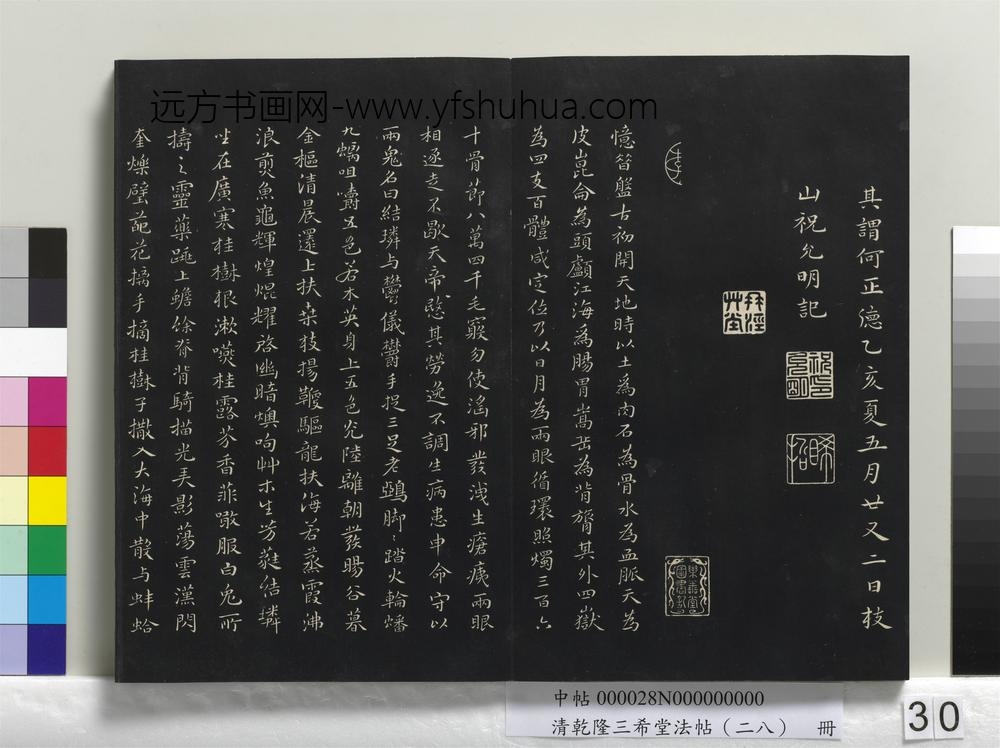 其謂何正德乙亥夏五月廿又二日枝
山祝允明記
憶昔盤古初開天地時以土為肉石為骨水為血脈天為
皮崑侖為頭顱江海為腸胃嵩岳為背膂其外四嶽
為四支百體咸定位乃以日月為兩眼循環照燭三百六
十骨節八萬四千毛竅勿使淫邪發洩生瘡痍兩眼
相逐走不歇天帝愍其勞逸不調生病患申命守以
兩鬼名曰結璘与鬱儀鬱手捉三足老鵶脚〻踏火輪蟠
九螭咀嚼五色若木英身上五色光陸離朝發暘谷暮
金樞清晨還上扶桑枝揚鞭驅龍扶海若蒸霞沸
浪煎魚龜輝煌焜耀啓幽暗燠呴艸木生芳蕤結璘
坐在廣寒桂樹根漱嚥桂露芬香菲噉服白兔所
擣之靈藥跳上蟾蜍脊背騎描光弄影蕩雲漢閃
奎爍璧葩花摛手摘桂樹子撒入大海中散与蚌蛤
远方书画网-www.yfshuhua.com
中帖 000028N000000000
清乾隆三希堂法帖（二八） 冊
30